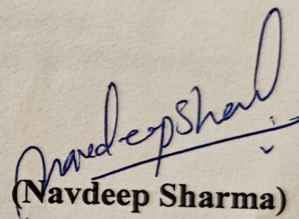 Navdeep Sharma
(Navdeep Sharma)